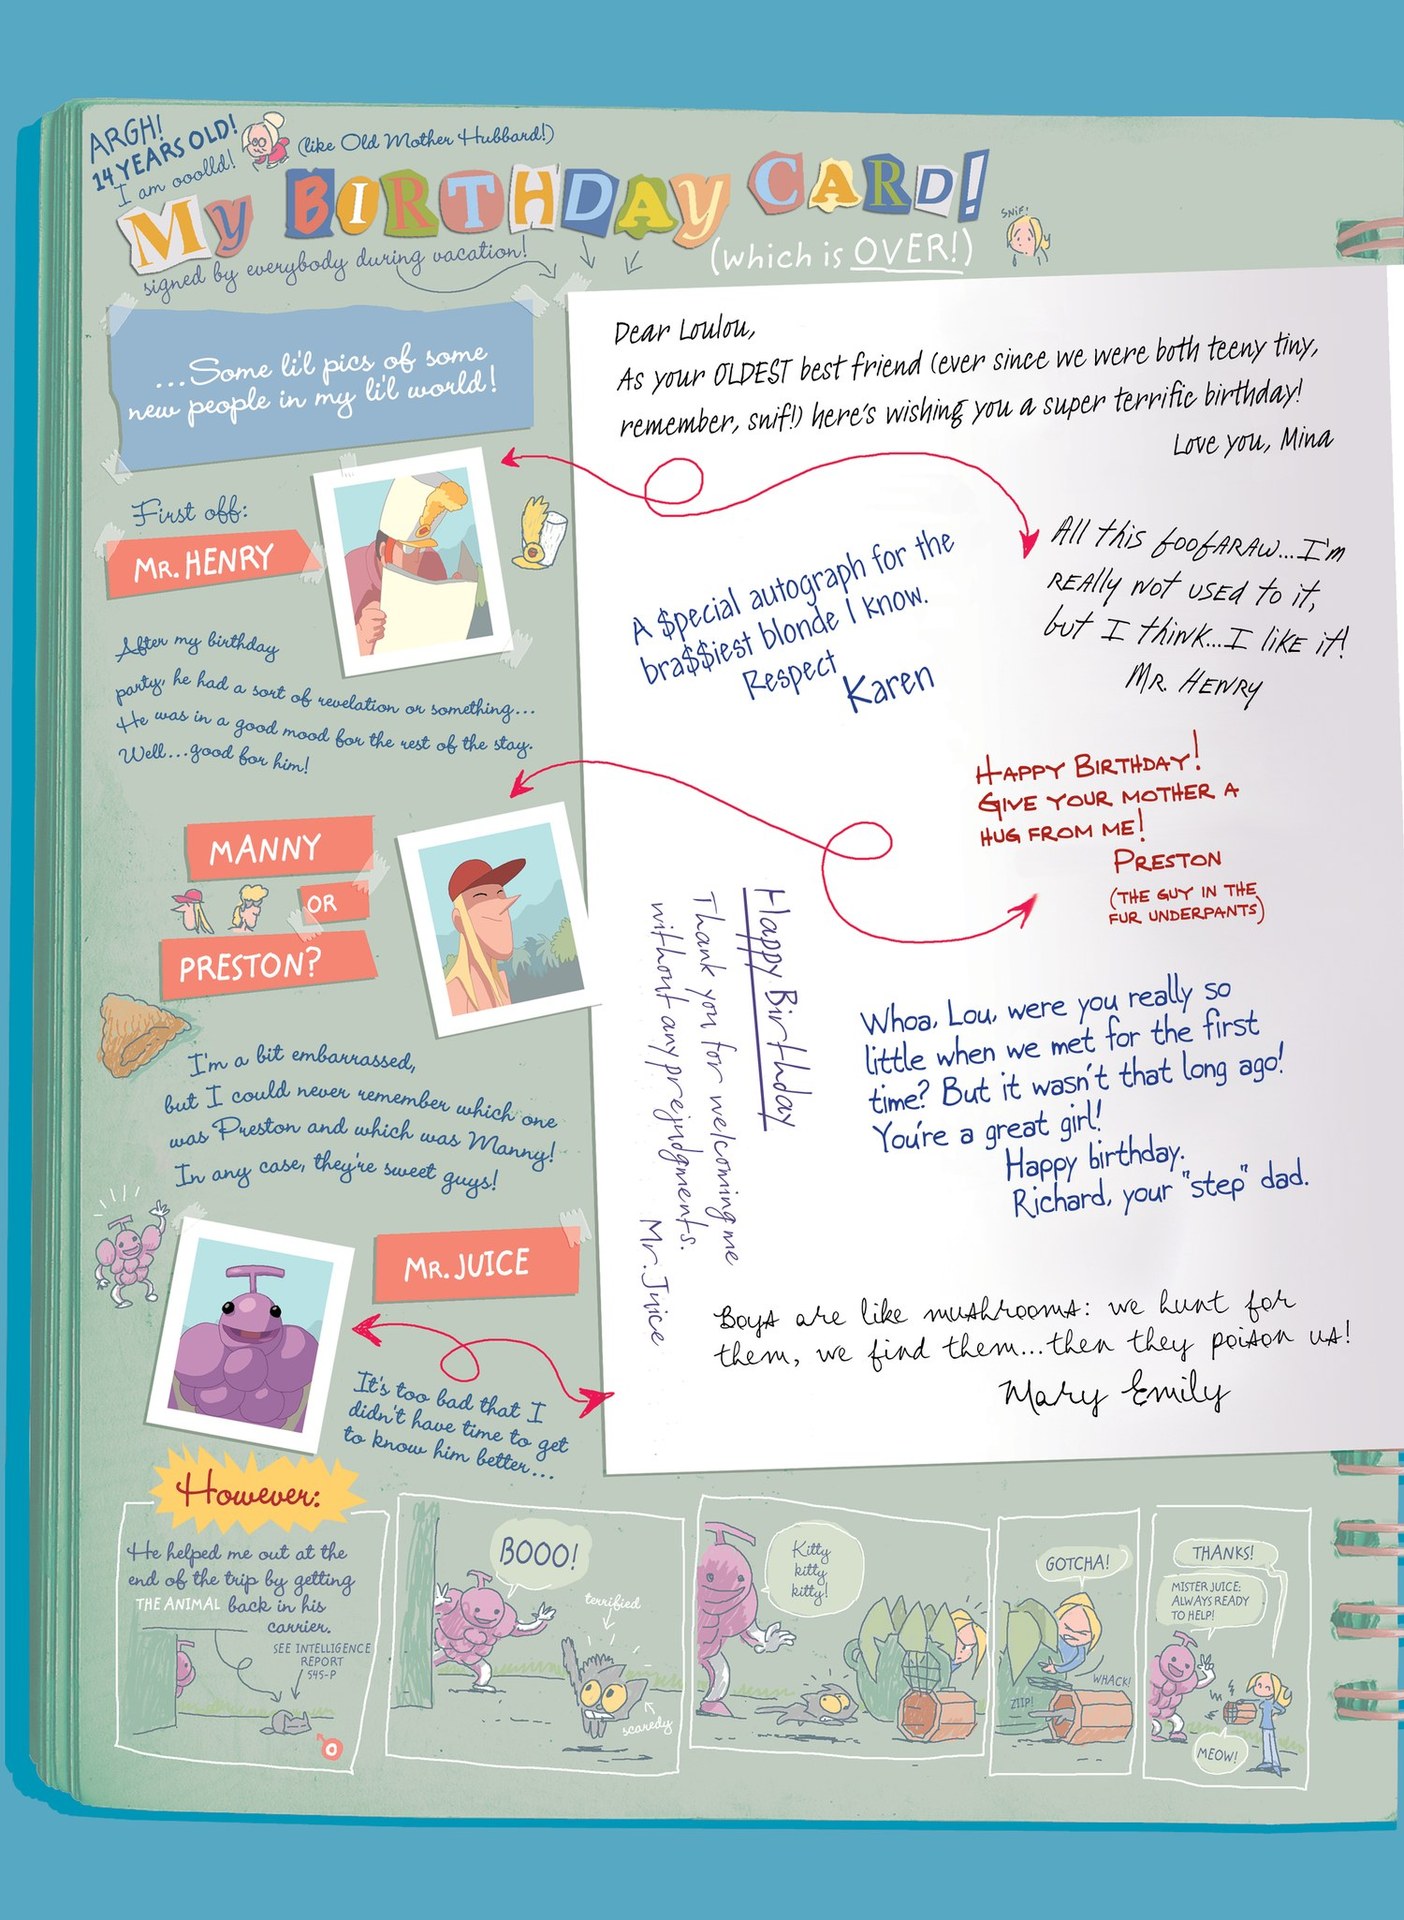 ARGH!
14 YEARS OLD!
I am ooolld!
(like Old Mother Hubbard!)
My BIRTHDAY CARD!
(which is OVER!)
SNIF!
signed by everybody during vacation!
...Some li'l pics of some
new people in my li'l world!
First off:
MR. HENRY
After my birthday
party, he had a sort of revelation or something...
He was in a good mood for the rest of the stay.
Well...good for him!
MANNY
OR
PRESTON?
I'm a bit embarrassed,
but I could never remember which one
was Preston and which was Manny!
In any case, they're sweet guys!
MR. JUICE
It's too bad that I
didn't have time to get
to know him better...
Dear Loulou,
As your OLDEST best friend (ever since we were both teeny tiny,
remember, snif!) here's wishing you a super terrific birthday!
Love you, Mina
A $pecial autograph for the
bra$$iest blonde I know.
Respect
Karen
All this foofaraw...I'm
really not used to it,
but I think...I like it!
Mr. Henry
HAPPY BIRTHDAY!
GIVE YOUR MOTHER A
HUG FROM ME!
PRESTON
(THE GUY IN THE
FUR UNDERPANTS)
Happy Birthday
Thank you for welcoming me
without any prejudgments.
Mr. Juice
Whoa, Lou, were you really so
little when we met for the first
time? But it wasn't that long ago!
You're a great girl!
Happy birthday.
Richard, your "step" dad.
Boys are like mushrooms: we hunt for
them, we find them...then they poison us!
Mary Emily
However:
He helped me out at the
end of the trip by getting
THE ANIMAL back in his
carrier.
SEE INTELLIGENCE
REPORT
545-P
BOOO!
terrified
scaredy
Kitty
kitty
kitty!
GOTCHA!
WHACK!
ZIIP!
THANKS!
MISTER JUICE:
ALWAYS READY
TO HELP!
MEOW!